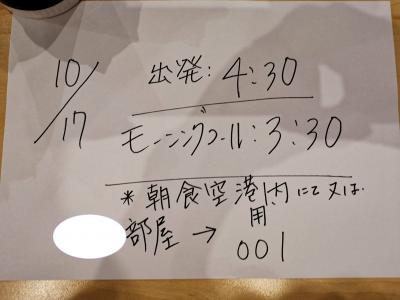 10/17
出発: 4:30
モーニングコール: 3:30
*朝食空港内にて又は.
用
部屋 → 001